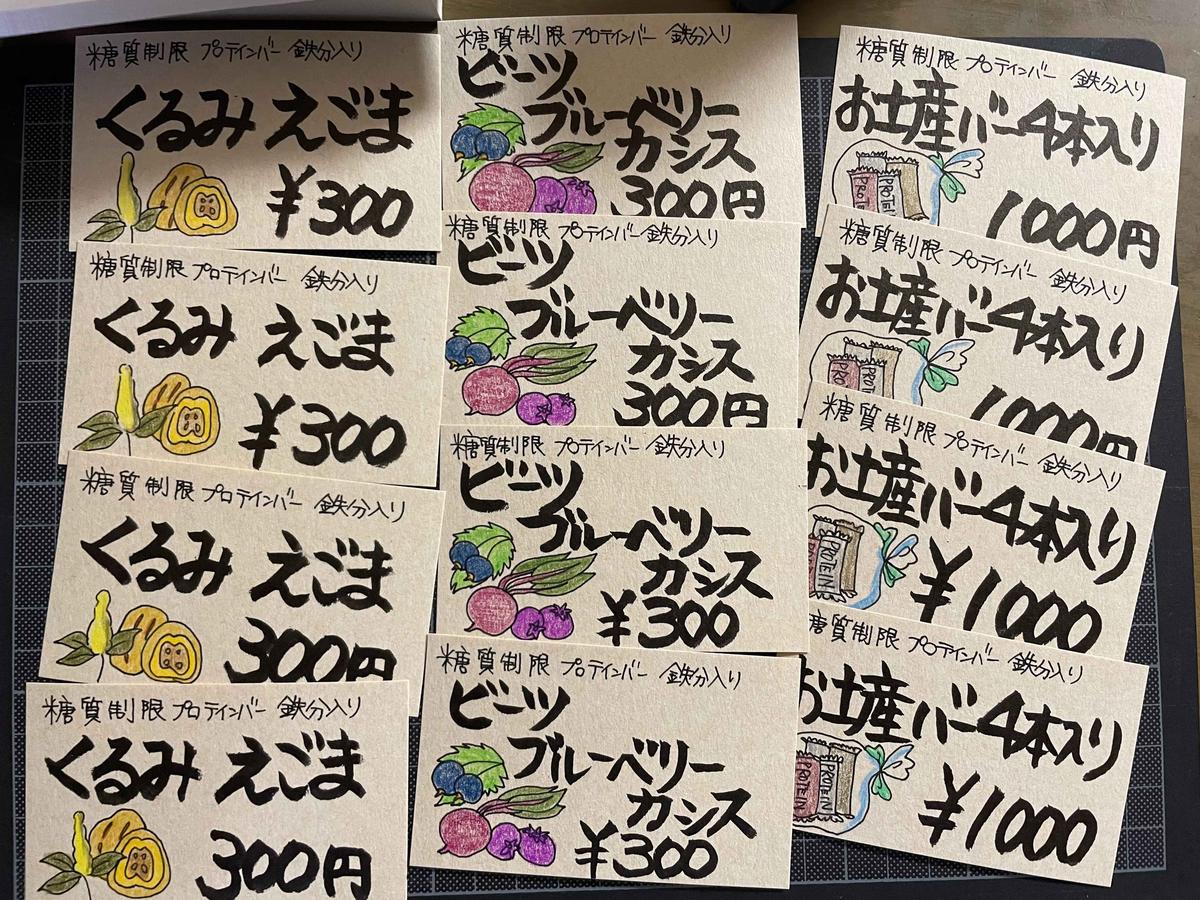 糖質制限 プロテインバー 鉄分入り
くるみ えごま
¥300
糖質制限 プロテインバー 鉄分入り
くるみ えごま
¥300
糖質制限 プロテインバー 鉄分入り
くるみ えごま
300円
糖質制限 プロテインバー 鉄分入り
くるみ えごま
300円
糖質制限 プロテインバー 鉄分入り
ビーツ
ブルーベリー
カシス
300円
糖質制限 プロテインバー 鉄分入り
ビーツ
ブルーベリー
カシス
300円
糖質制限 プロテインバー 鉄分入り
ビーツ
ブルーベリー
カシス
¥300
糖質制限 プロテインバー 鉄分入り
ビーツ
ブルーベリー
カシス
¥300
糖質制限 プロテインバー 鉄分入り
お土産バー4本入り
PROTEIN
1000円
糖質制限 プロテインバー 鉄分入り
お土産バー4本入り
1000円
糖質制限 プロテインバー 鉄分入り
お土産バー4本入り
PROTEIN
¥1000
糖質制限 プロテインバー 鉄分入り
お土産バー4本入り
PROTEIN PROTEIN
¥1000